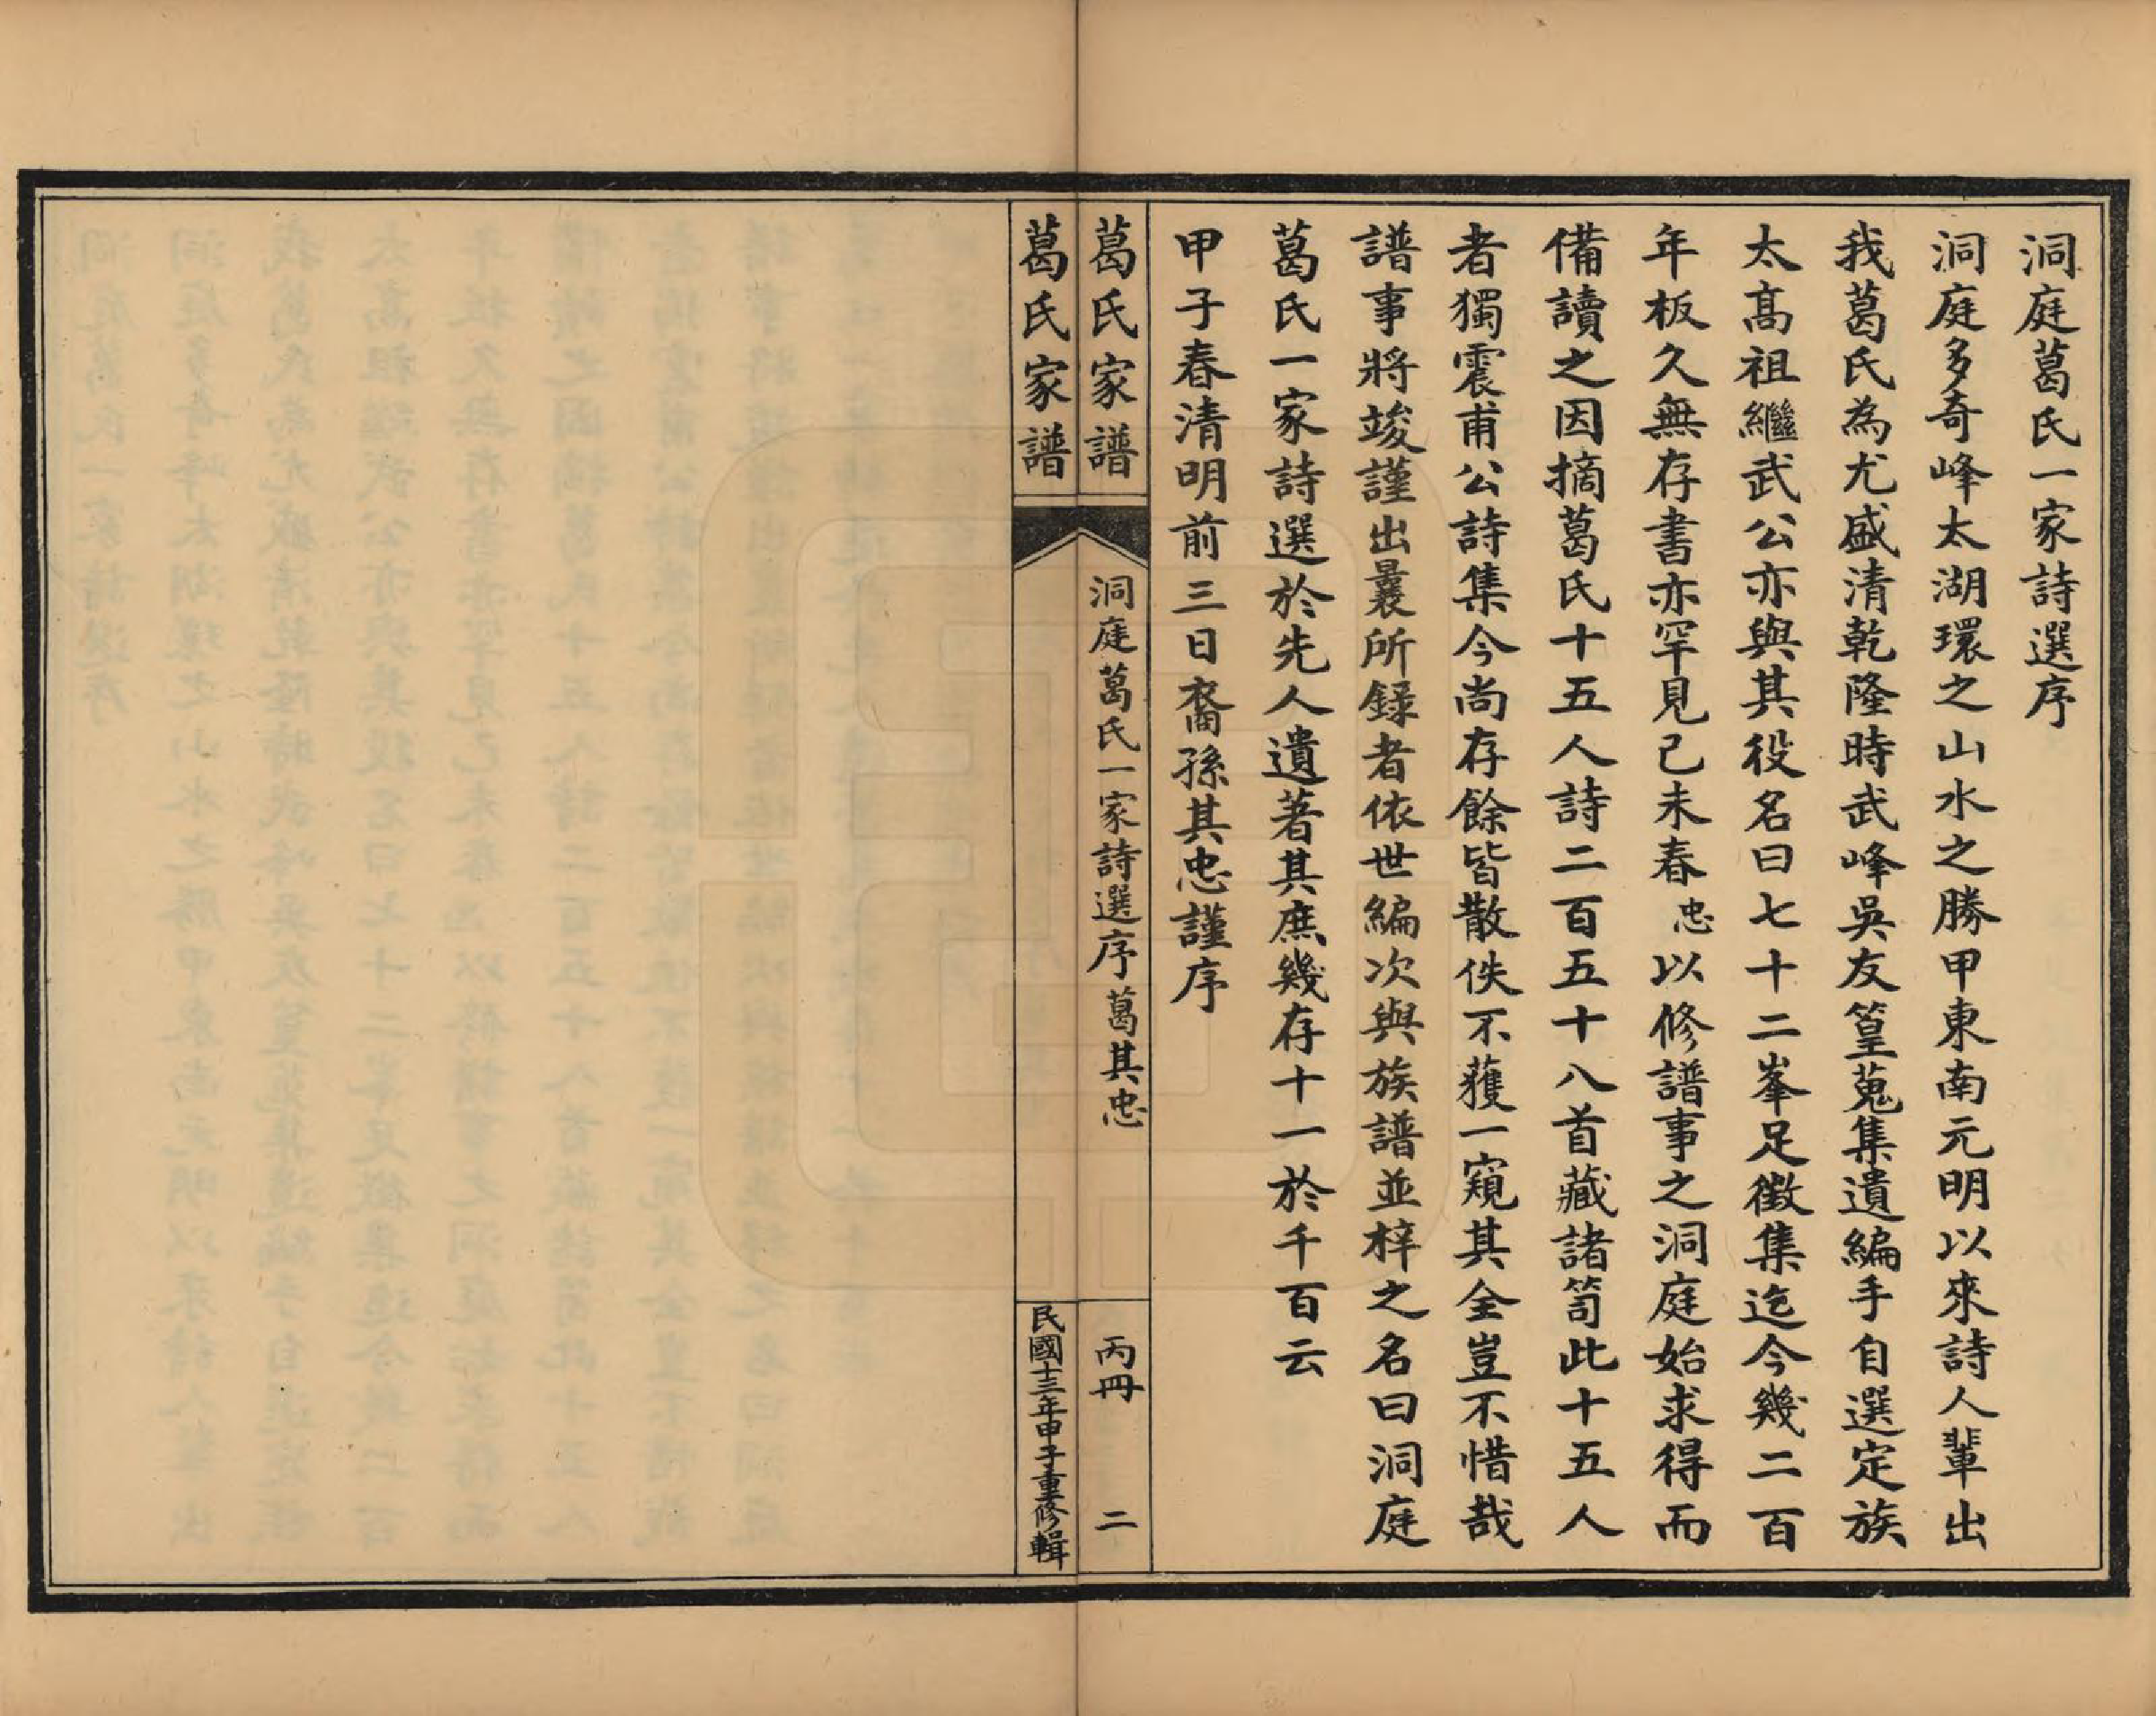 洞庭葛氏一家詩選序
洞庭多奇峰太湖環之山水之勝甲東南元明以來詩人輩出
我葛氏為尤盛清乾隆時武峰吳友篁蒐集遺編手自選定族
太高祖繼武公亦與其役名曰七十二峯足徵集迄今幾二百
年板久無存書亦罕見己未春忠以修譜事之洞庭始求得而
備讀之因摘葛氏十五人詩二百五十八首藏諸笥此十五人
者獨震甫公詩集今尚存餘皆散佚不獲一窺其全豈不惜哉
譜事將竣謹出曩所錄者依世編次與族譜並梓之名曰洞庭
葛氏一家詩選於先人遺著其庶幾存十一於千百云
甲子春清明前三日裔孫其忠謹序
葛氏家譜
洞庭葛氏一家詩選序葛其忠
丙冊 二
葛氏家譜
民國十三年甲子重修輯